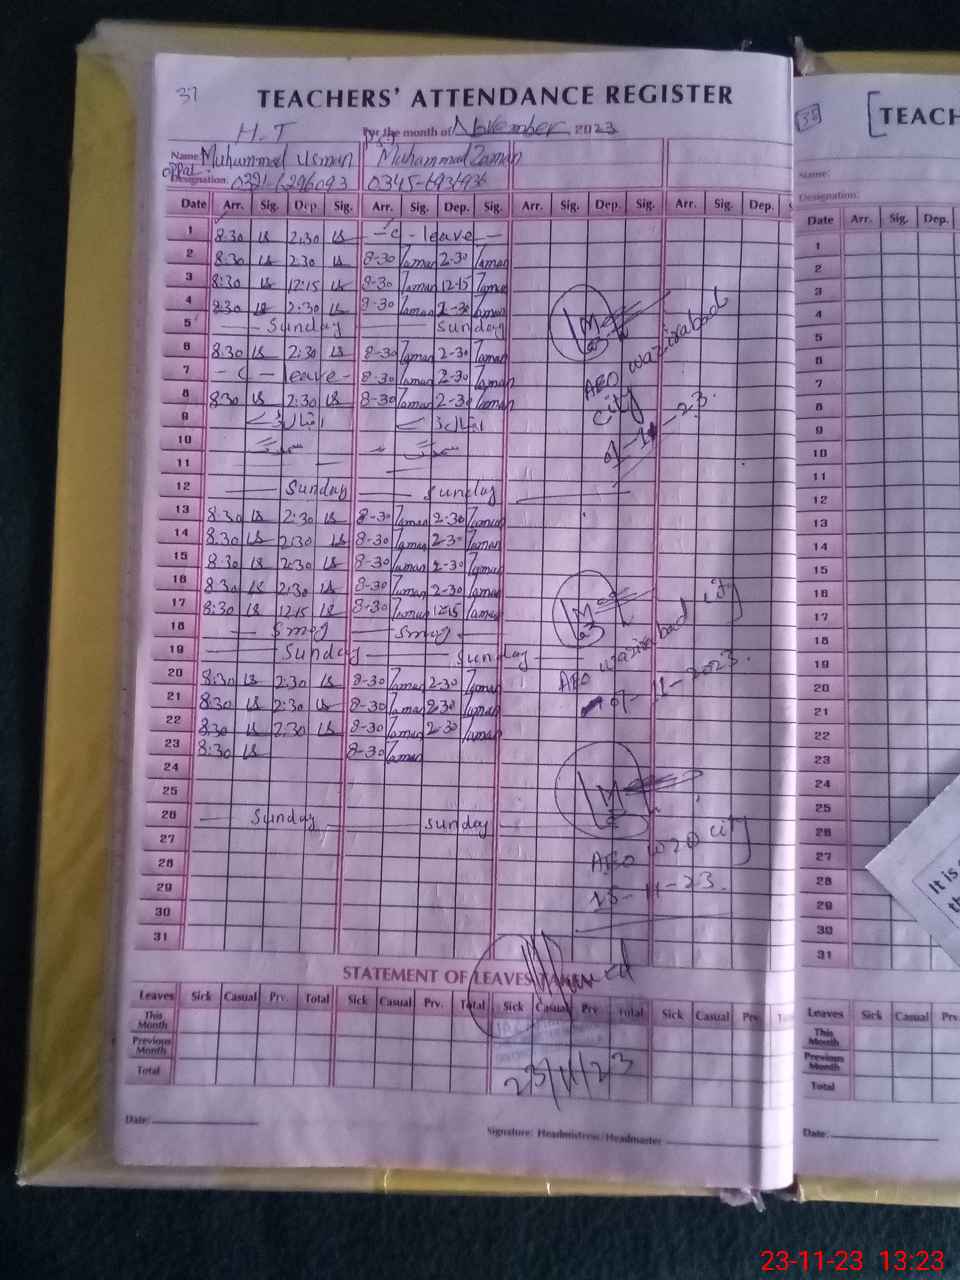 37
TEACHERS' ATTENDANCE REGISTER
H.T
For the month of November 2023
Name: Muhammad Usman Muhammad Zaman
Designation: 0321-6296093 0345-6936936
Date Arr. Sig. Dep. Sig. Arr. Sig. Dep. Sig. Arr. Sig. Dep. Sig. Arr. Sig. Dep.
1 8:30 2:30 - c - leave -
2 8:30 2:30 8-30 Zaman 2-30 Zaman
3 8:30 12:15 8-30 Zaman 12-15 Zaman
4 8:30 2:30 8-30 Zaman 2-30 Zaman
5 Sunday Sunday
6 8:30 2:30 8-30 Zaman 2-30 Zaman
7 - c - leave - 8-30 Zaman 2-30 Zaman
8 8:30 2:30 8-30 Zaman 2-30 Zaman
9
10
11
12 Sunday Sunday
13 8:30 2:30 8-30 Zaman 2-30 Zaman
14 8:30 2:30 8-30 Zaman 2-30 Zaman
15 8:30 2:30 8-30 Zaman 2-30 Zaman
16 8:30 2:30 8-30 Zaman 2-30 Zaman
17 8:30 12:15 8-30 Zaman 12-15 Zaman
18 Smog Smog
19 Sunday Sunday
20 8:30 2:30 8-30 Zaman 2-30 Zaman
21 8:30 2:30 8-30 Zaman 2-30 Zaman
22 8:30 2:30 8-30 Zaman 2-30 Zaman
23 8:30 8-30 Zaman
24
25
26 Sunday Sunday
27
28
29
30
31
AEO wazirabad
city
AEO wazirabad city
-11-2023
AEO wzd city
15-11-23
STATEMENT OF LEAVES TAKEN
Leaves Sick Casual Prv. Total Sick Casual Prv. Total Sick Casual Prv. Total Sick Casual Prv.
This Month
Previous Month
Total
23/11/23
Date:
Signature: Headmistress/Headmaster
35
TEACH
Name:
Designation:
Date Arr. Sig. Dep.
1
2
3
4
5
6
7
8
9
10
11
12
13
14
15
16
17
18
19
20
21
22
23
24
25
26
27
28
29
30
31
It is
Leaves Sick Casual Prv.
This Month
Previous Month
Total
Date:
23-11-23 13:23